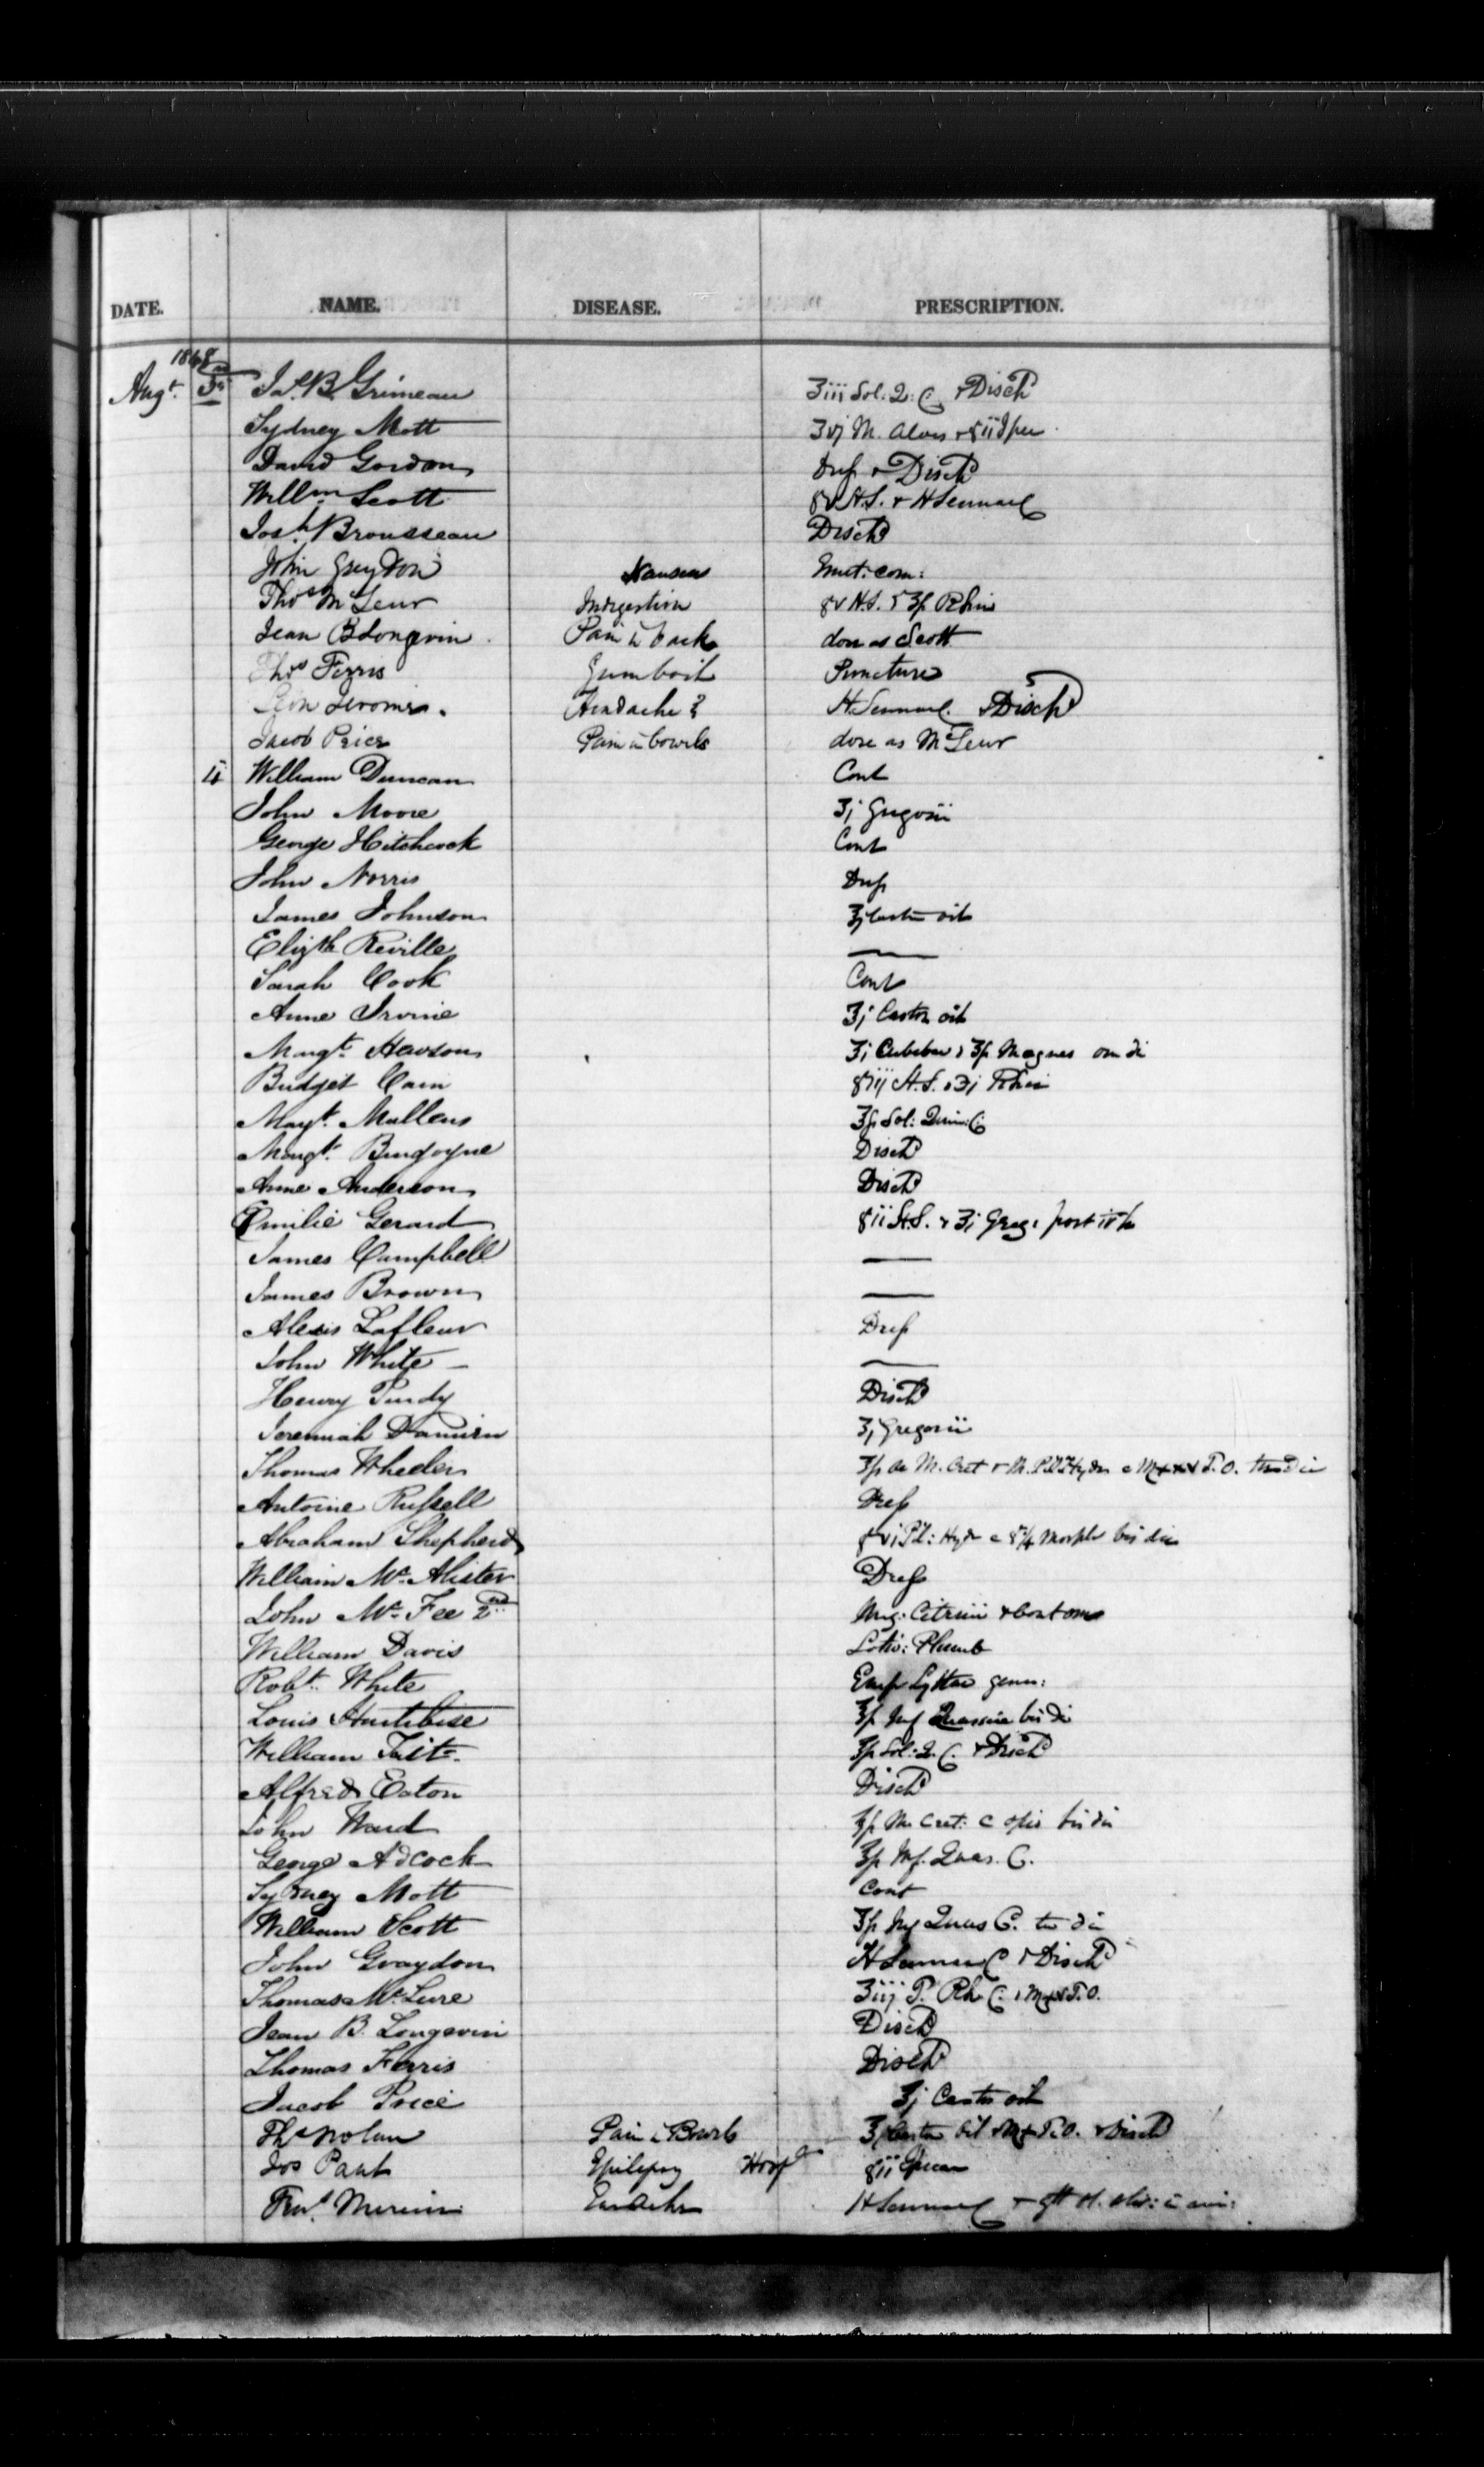 DATE. NAME. DISEASE. PRESCRIPTION.
1868
Augt. 3rd Jas. B. Grimeau ʒiii Sol: Q: C. & Disch
Sydney Mott ʒvj M. Aloes
David Gordon Disch
Willm Scott H. Sennae C
Josh. Brousseau Disch
John Graydon Nausea Emet: com:
Thos McLeur Indigestion grv H.S. & ʒſs Rhei
Jean B Longevin Pain in back dose as Scott
Thos Ferris Gumboil Puncture
Headache H Sennae C. & Disch
Jacob Price Pain in bowels dose as McLeur
4 William Duncan Cont
John Moore ʒj Gregorii
George Hitchcock Cont
John Norris Dress
James Johnson ʒj Castor oil
Elizth Reville —
Sarah Cook Cont
Anne Irvine ʒj Castor oil
Margt. Hewson ʒj Cubebar & ʒſs Magnes om di
Bridget Cain griij H.S. & ℈j Rhei
Margt. Mullens ʒſs Sol: Quin: C:
Margt. Burgoyne Disch
Anne Anderson Disch
Emilie Gerard grii H.S. & ʒj Greg: post
James Campbell —
James Brown —
Alexis Lafleur Dress
John White — —
Henry Purdy Disch
Jeremiah ʒj Gregorii
Thomas Wheeler ʒſs M. Cret T.O.
Antoine Russell Dress
Abraham Shepherd grvi Pil: Hyd c gr¼ Morph bis die
William Mc. Alister Dress
John Mc. Fee 2nd Ung: Citrini & Cont
William Davis Lotio: Plumb
Robt. White Emp Lyttae genu:
Louis Hurtibise ʒſs Inf Quassiae bis di
William Tait ʒſs Sol: Q. C. & Disch
Alfred Eaton Disch
John Ward ʒſs M Cret: c opio bis di
George Adcock ʒſs Inf. Quas. C.
Sydney Mott Cont
William Scott ʒſs Inf Quas C. ter di
John Graydon H Sennae C & Disch
Thomas McLure ʒiij T. Rh C.
Jean B. Longevin Disch
Thomas Ferris Disch
Jacob Price ʒj Castor oil
Ths Nolan Pain in Bowels ʒj Castor Oil T.O. & Disch
Jos Paul Epilepsy Hospl
Earache H Sennae C